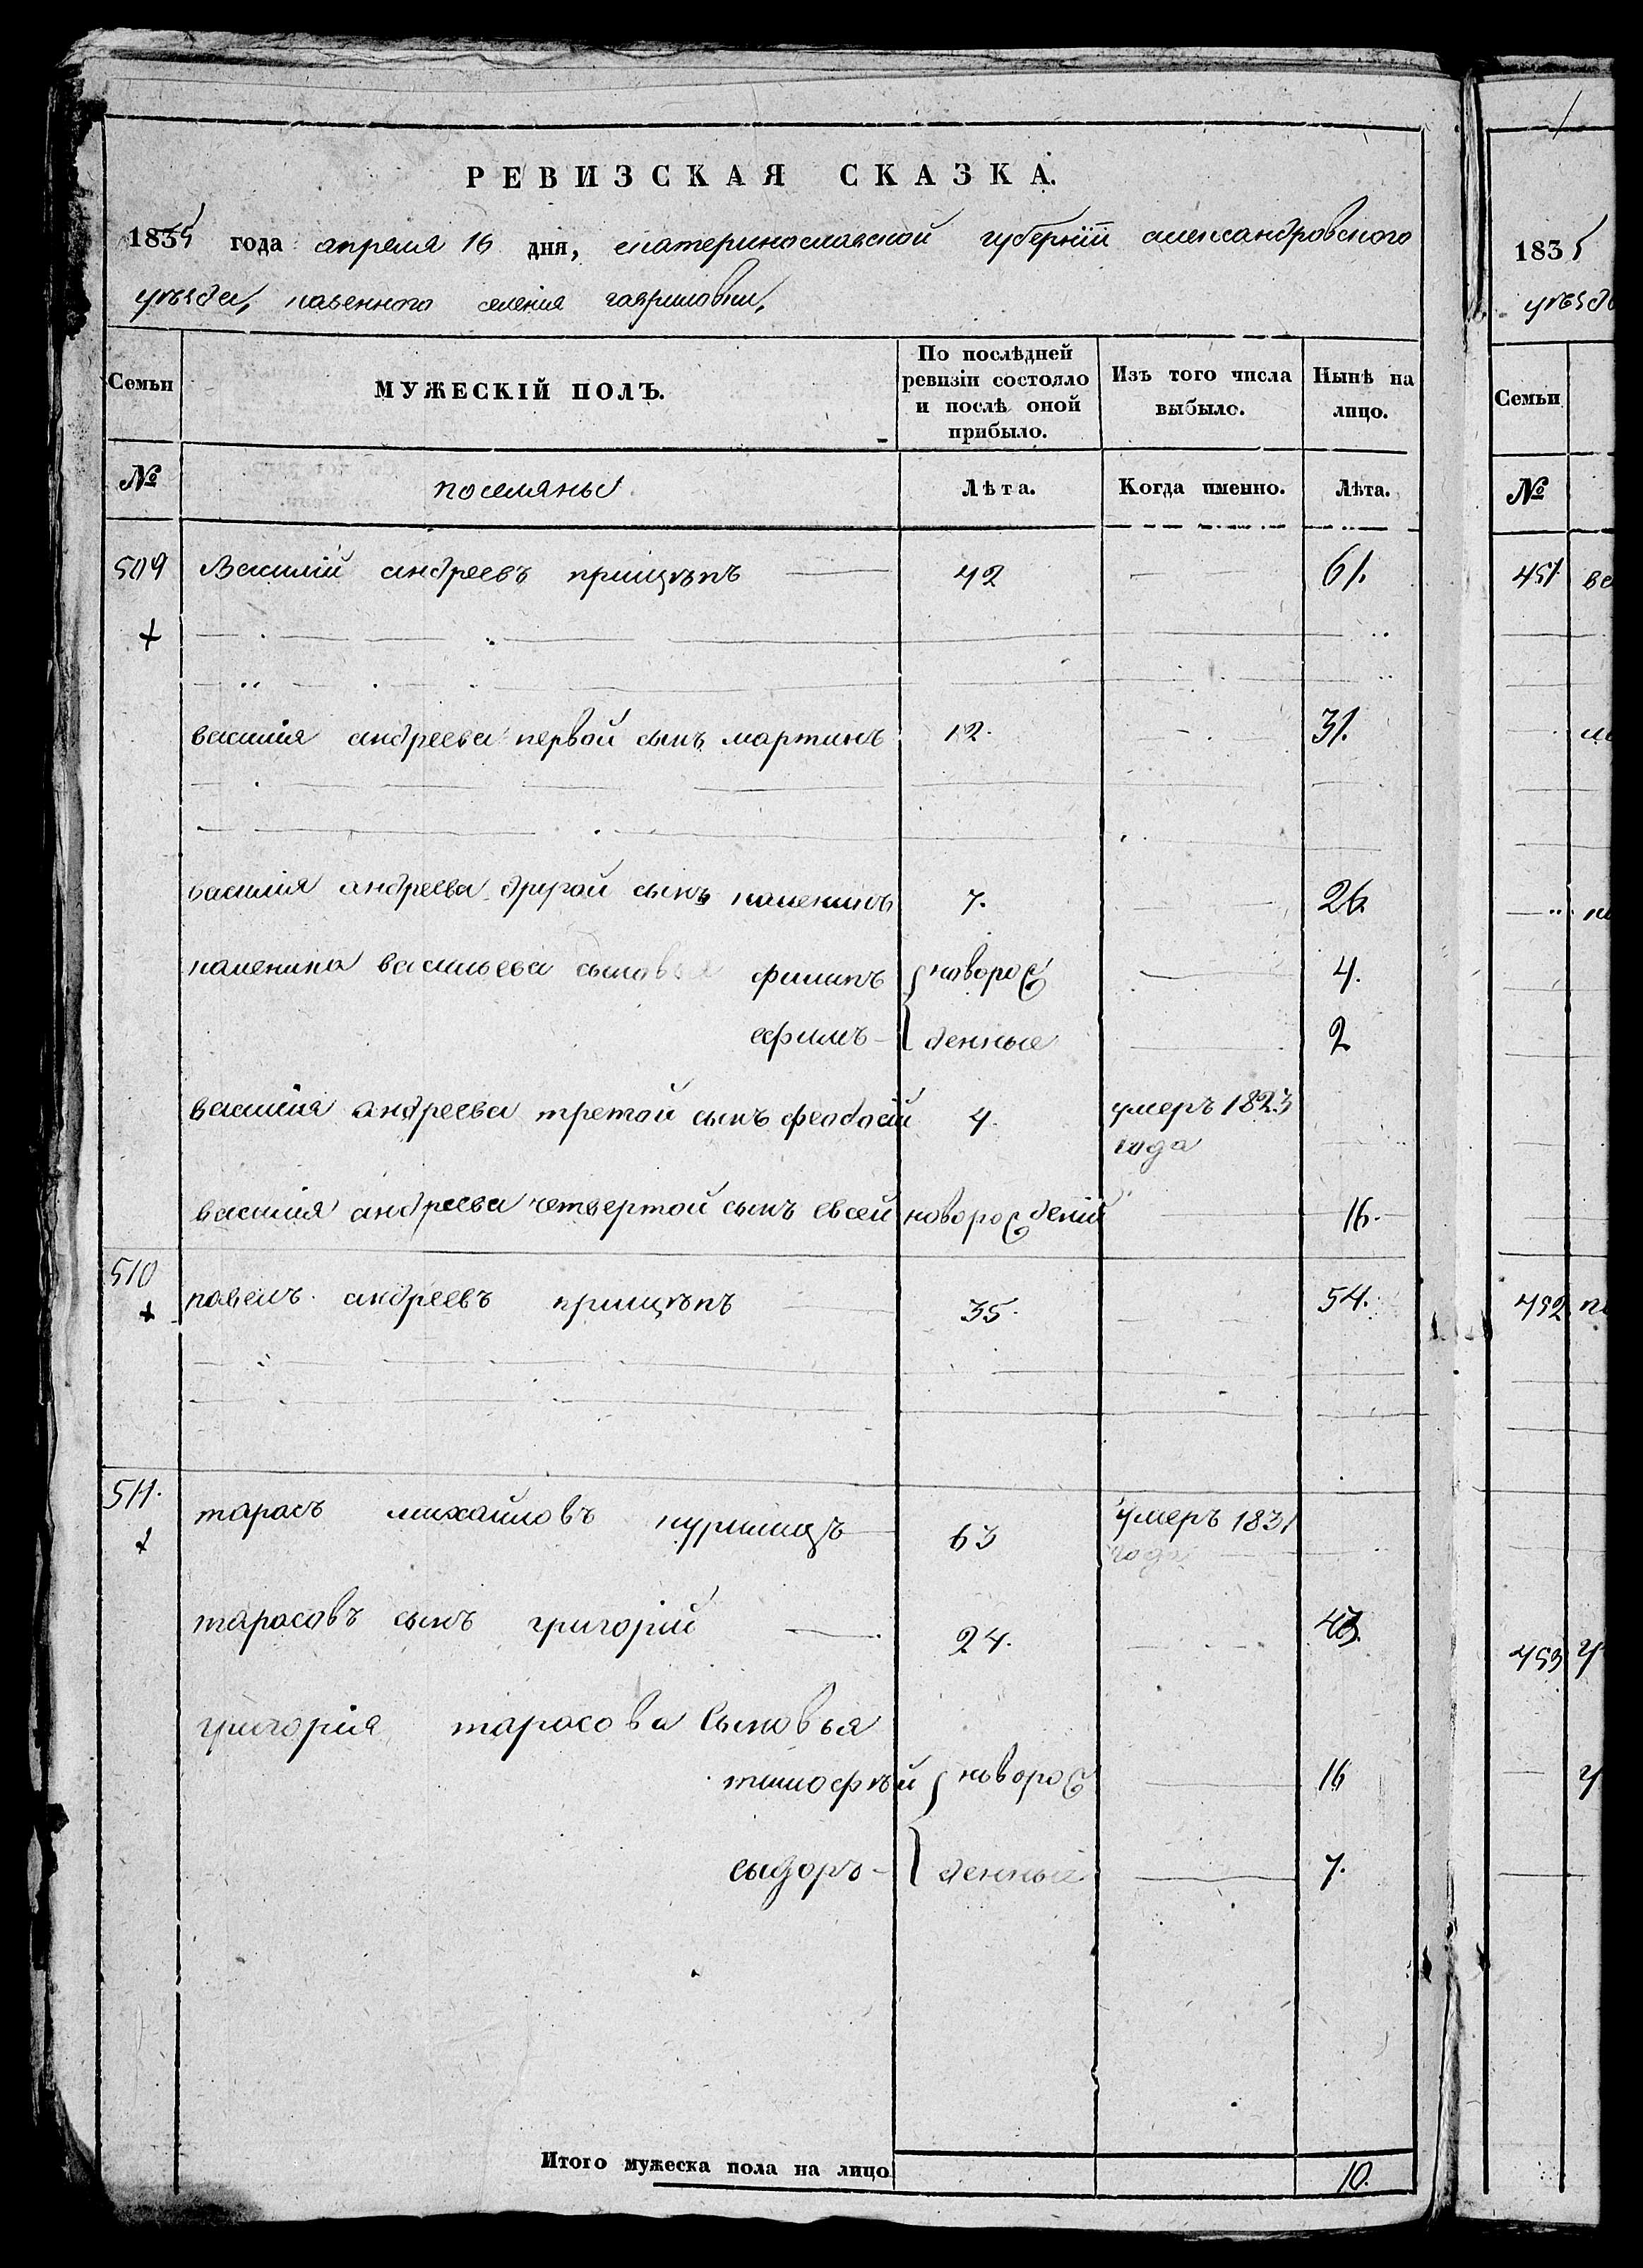 РЕВИЗСКАЯ СКАЗКА.
1835 года апреля 16 дня, екатеринославской губернïи александровского
уѣзда, казенного селенiя гавриловки,
Семьи
МУЖЕСКІЙ ПОЛЪ.
По послѣдней ревизіи состояло и послѣ оной прибыло.
Изъ того числа выбыло.
Нынѣ на лицо.
№
поселяны
Лѣта.
Когда именно.
Лѣта.
509 Василiй андреевъ прищѣпъ 42 61.
василiя андреева первой сынъ мартинъ 12. 31.
василiя андреева другой сынъ каленикъ 7. 26.
каленика васильева сыновья филипъ новорож 4.
ефимъ денные 2
василiя андреева третой сынъ феодосiй 4. умеръ 1823
года
василiя андреева четвертой сынъ евсей новорожденiй 16.
510 павелъ андреевъ прищѣпъ 35. 54.
511. тарасъ михайловъ курилицъ 63 умеръ 1831
года
тарасовъ сынъ григорiй 24. 43.
григорiя тарасова сыновья
тимофѣй новорож 16
сыдоръ денные 7.
Итого мужеска пола на лицо 10.
1835
уѣзд
Семьи
№
451
452
453